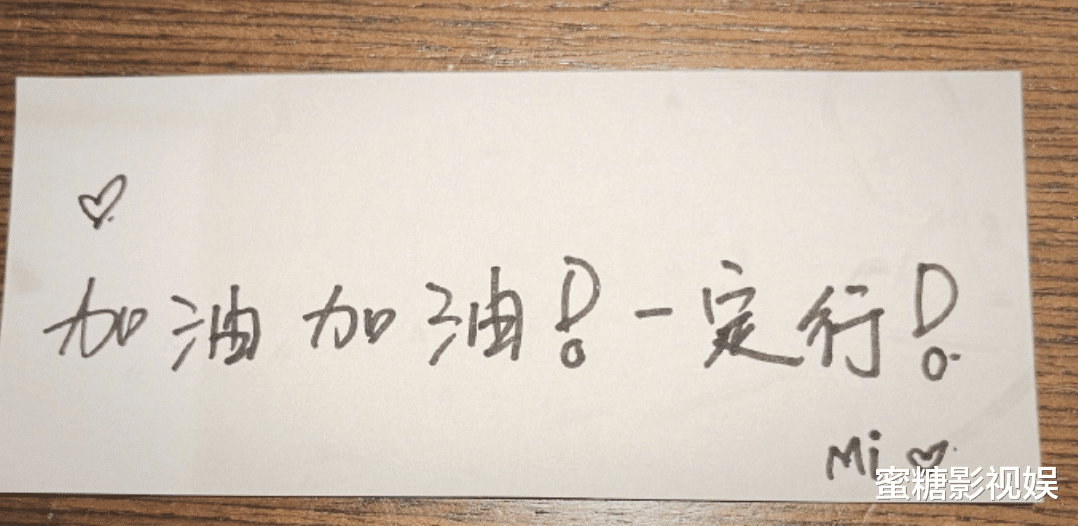 ♡
加油加油！一定行！
Mi ♡
蜜糖影视娱